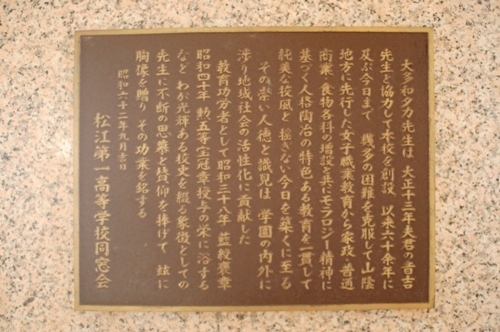 大多和タカ先生は 大正十三年夫君の音吉
先生と協力して本校を創設 以来六十余年に
及ぶ今日まで 幾多の困難を克服して山陰
地方に先行した女子職業教育から家政 普通
商業 食物各科の増設と共にモラロジー精神に
基づく人格陶冶の特色ある教育を一貫して
純美な校風と 揺ぎない今日を築くに至る
その崇い人徳と識見は 学園の内外に
渉り地域社会の活性化に貢献した
教育功労者として昭和三十八年 藍綬褒章
昭和四十年 勲五等宝冠章授与の栄に浴する
など わが光輝ある校史を綴る象徴としての
先生に不断の思慕と賛仰を捧げて 玆に
胸像を贈り その功業を銘する
昭和六十二年九月吉日
松江第一高等学校同窓会